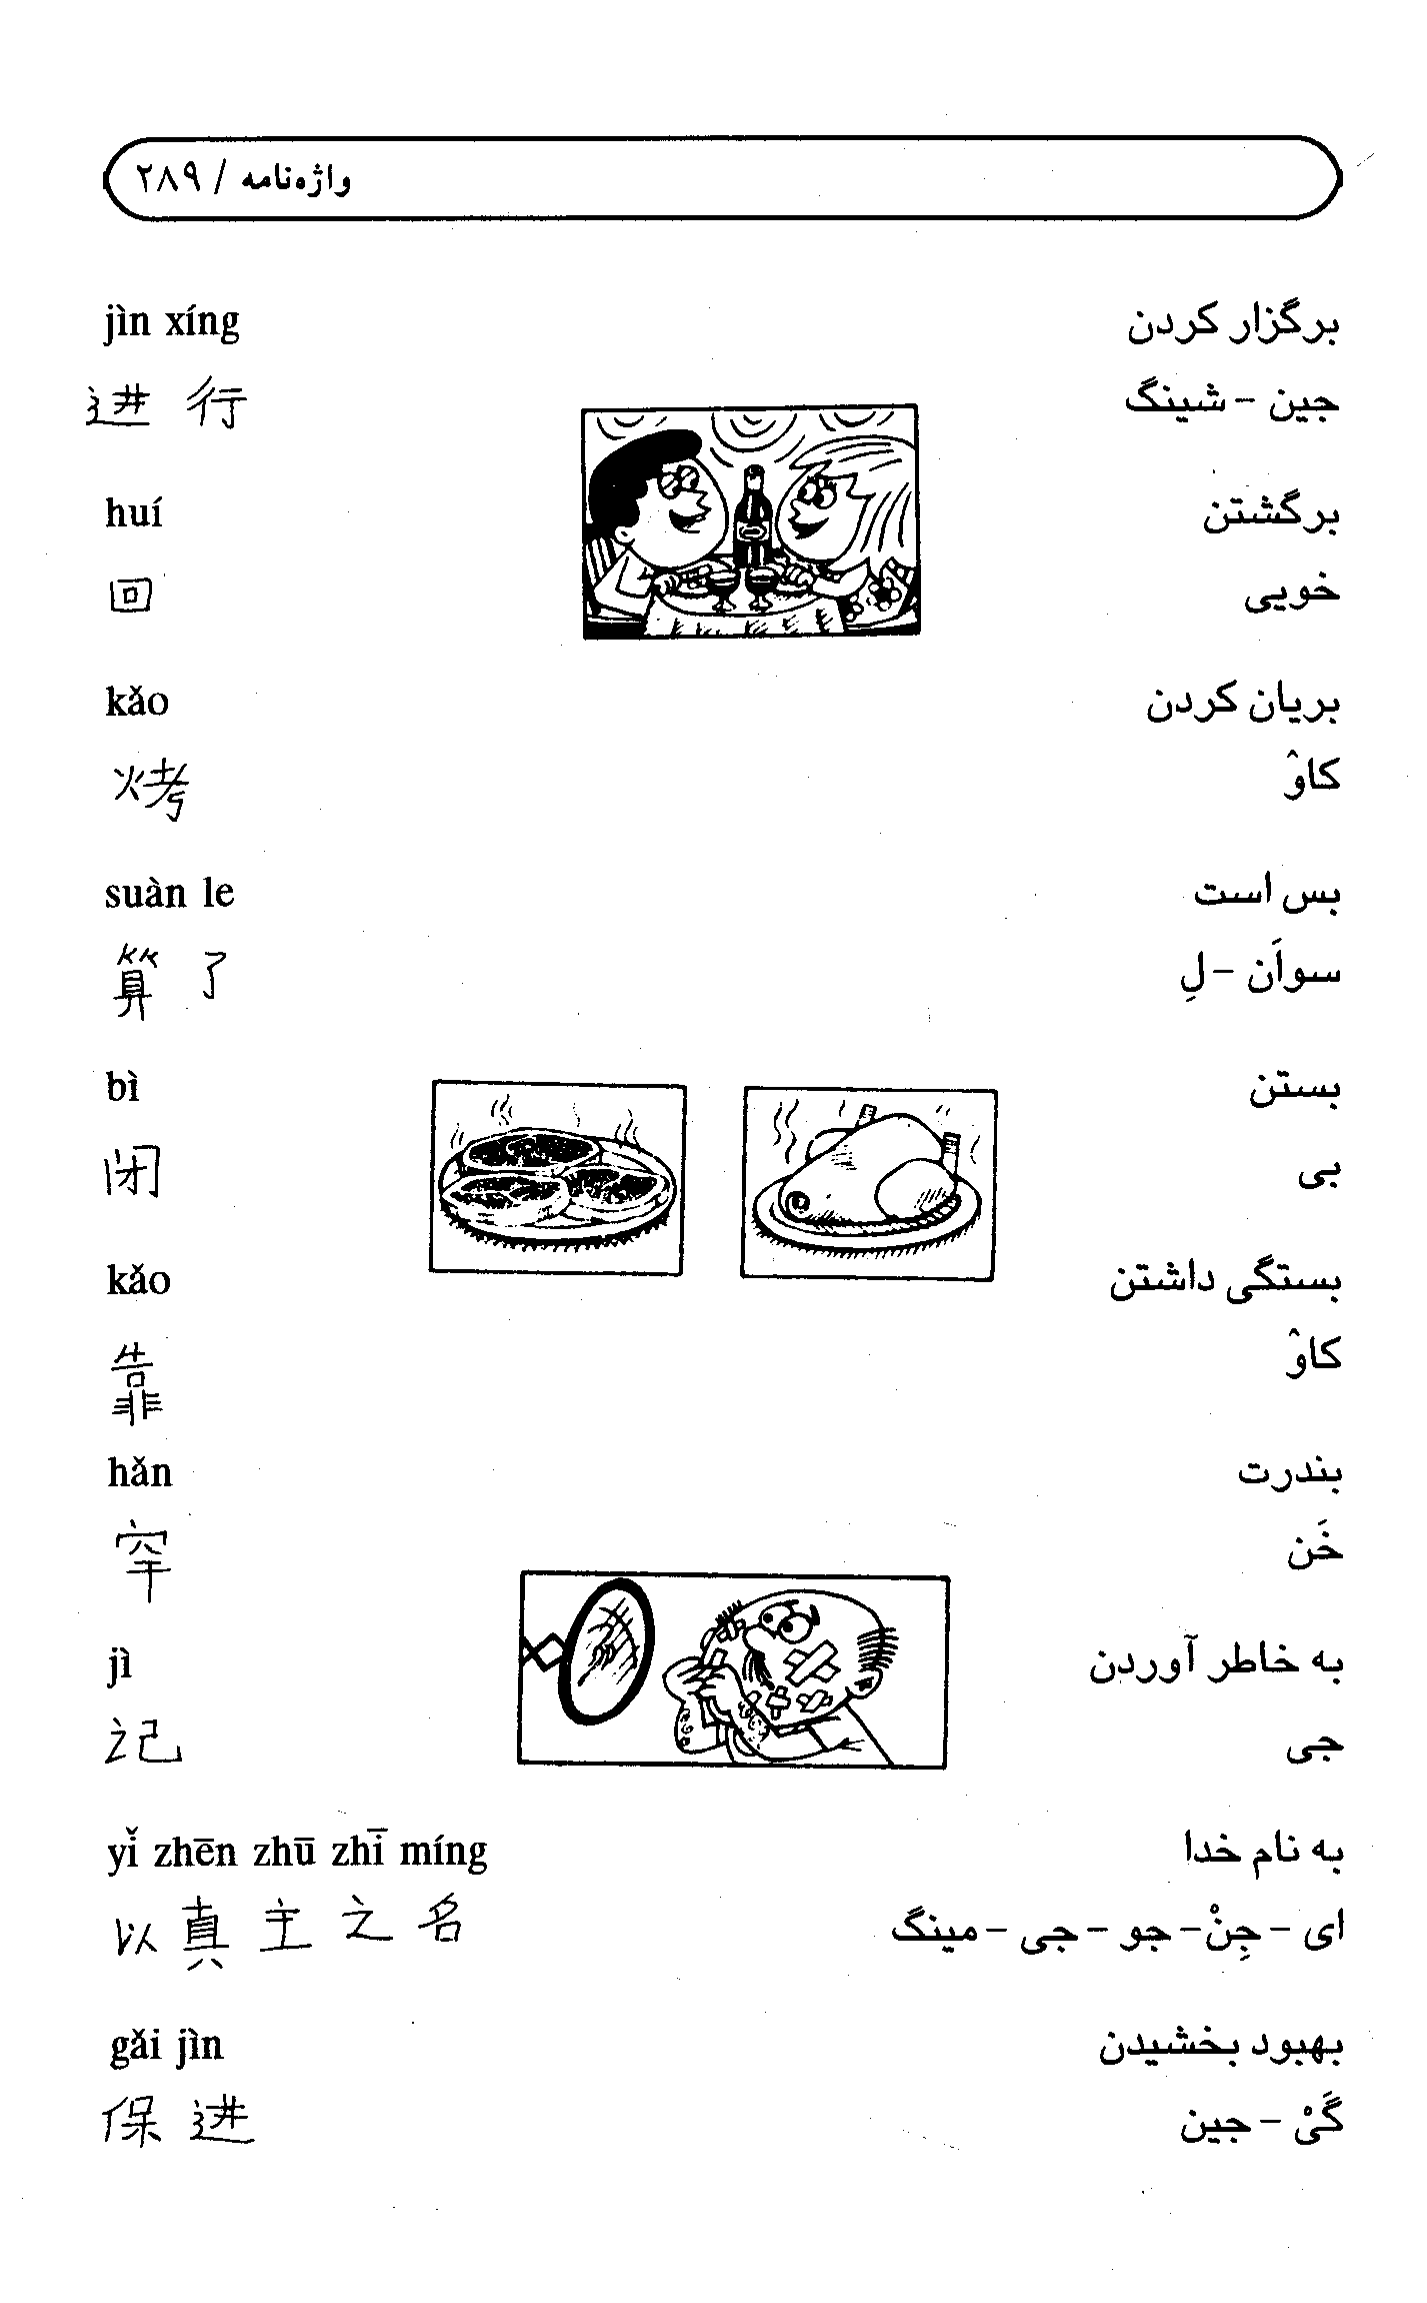 واژه‌نامه / ۲۸۹
برگزار کردن jìn xíng
جین - شینگ 进 行
برگشتن huí
خویی 回
بریان کردن kǎo
کاوْ 烤
بس است suàn le
سوأَن - لِ 算 了
بستن bì
بی 闭
بستگی داشتن kǎo
کاوْ 靠
بندرت hǎn
خَن 罕
به خاطر آوردن jì
جی 记
به نام خدا yǐ zhēn zhū zhī míng
ای - جِنْ - جو - جی - مینگ 以 真 主 之 名
بهبود بخشیدن gǎi jìn
گَیْ - جین 保 进